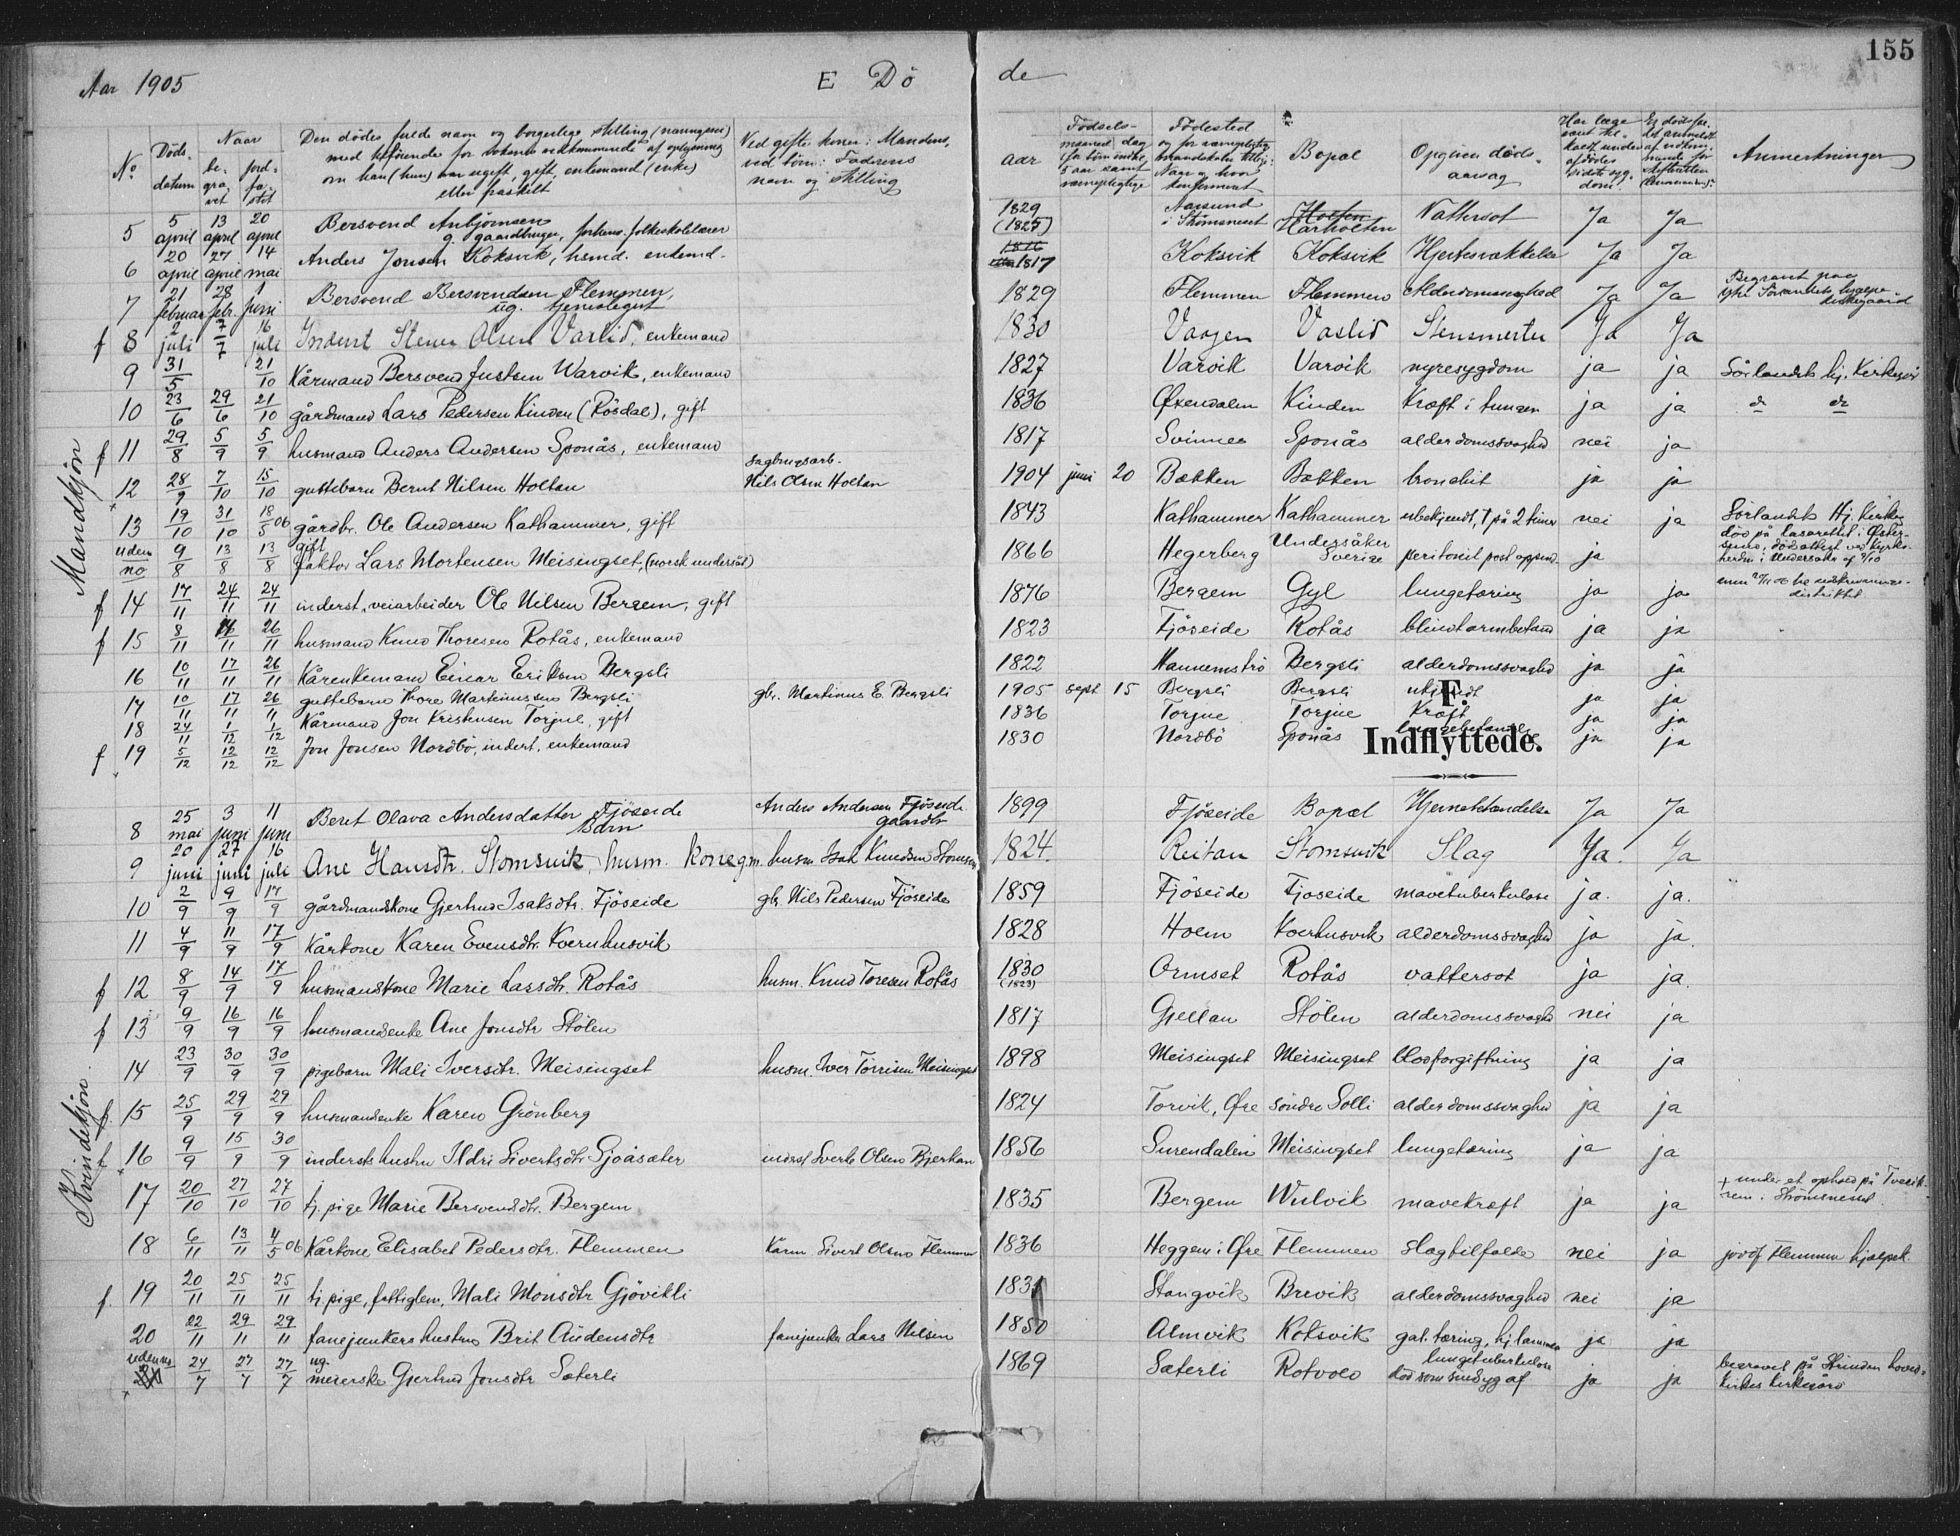 155
Aar 1905 E Döde
No. Döds-datum Naar be-gra-vet jord-fæ-stet Den dödes fulde navn og borgerlige stilling (næringsvei) om han (hun) var ugift, gift, enkemand (enke) eller fraskilt Ved gifte koner: Mandens, ved börn: Faderens navn og stilling aar Födested Bopæl Opgiven döds-aarsag Anmerkninger
Mandkjön
5 5 april 13 april 20 april Bersvend Anbjörnsen g. gaardbruger, forhens. folkeskolelærer 1829 (1825) Aarsund i Strømsneset Harholten Vattersot Ja Ja
6 20 april 27 april 14 mai Anders Jonsen Koksvik, husmd. enkemd. 1817 Koksvik Koksvik Hjertesvækkelse Ja Ja
7 21 februar 28 febr. 1 juni Bersvend Bersvendsen Flemmen, ug. 1829 Flemmen Flemmen Alderdomssvaghed Ja Ja
f 8 2 juli 7/7 16 juli Inderst Stener Olsen Vaslid, enkemand 1830 Vaagen Vaslid Stensmerter Ja Ja
9 31/5 21/10 Kårmand Bersvend Justsen Warvik, enkemand 1827 Varvik Varvik nyresygdom ja ja Sörlandets hj. Kirkegår
10 23/6 29/6 21/10 gårdmand Lars Pedersen Kinden (Rösdal), gift 1836 Øxendalen Kinden Kræft i tungen ja ja do do
f 11 29/8 5/9 5/9 husmand Anders Andersen Sponås, enkemand 1817 Svinnes Sponås alderdomssvaghed nei ja
12 28/9 7/10 15/10 guttebarn Bernt Nilsen Holtan sagbrugsarb. Nils Olsen Holtan 1904 juni 20 Bækken Bækken bronchit ja ja
13 19/10 31/10 18/5 06 gårdbr. Ole Andersen Kathammer, gift 1843 Kathammer Kathammer ubekjendt, † på 2 timer nei ja Sörlandets Hj. Kirke
uden no 9/8 13/8 13/8 gift faktor Lars Mortensen Meisingset, (norsk undersåt) 1866 Hegerberg Undersåker Sverige peritonit ja död på Lasarettet i Øster-sund
f 14 17/11 24/11 24/11 inderst, veiarbeider Ole Nilsen Bergem, gift 1876 Bergem Gyl lungetæring ja ja
f 15 8/11 16/11 26/11 husmand Knud Thoresen Rotås, enkemand 1823 Fjöseide Rotås ja ja
16 10/11 17/11 26/11 Kårenkemand Einar Eriksen Bergsli 1822 Hannemstrø Bergsli alderdomssvaghed ja ja
17 10/11 17/11 26/11 guttebarn Thore Martinussen Bergsli gbr. Martinus E. Bergsli 1905 sept 15 Bergsli Bergsli ukjendt ja ja
18 24/11 1/12 1/12 Kårmand Jon Kristensen Torjul, gift 1836 Torjue Torjue Kræft ja ja
f 19 5/12 12/12 12/12 Jon Jonsen Nordbö, inderst, enkemand 1830 Nordbö Sponås ja ja
F.
Indflyttede.
Kvindekjön.
8 25 mai 3 juni 11 juni Beret Olava Andersdatter Fjöseide Barn Anders Andersen Fjöseide gaardbr 1899 Fjöseide Bopæl Hjernebetændelse Ja Ja
9 20 juni 27 juni 16 juli Ane Hansdtr. Stomsvik, husm. kone gm. husm Isak Knudsen Stomsvik 1824 Reitan Stomsvik Slag Ja. Ja
10 2/9 9/9 17/9 gårdmandskone Gjertrud Isaksdtr. Fjöseide gbr. Nils Pedersen Fjöseide 1859 Fjöseide Fjoseide mavetuberkulose ja. ja.
11 4/9 11/9 17/9 Kårkone Karen Evensdtr. Kvernhusvik 1828 Hoem Kverhusvik alderdomssvaghed ja ja.
f 12 8/9 14/9 17/9 husmandskone Marie Larsdtr. Rotås husm. Knud Toresen Rotås 1830 (1823) Ormset Rotås vattersot ja ja.
f 13 9/9 16/9 16/9 husmandsenke Ane Jonsdtr Stölen 1817 Gjellan Stölen alderdomssvaghed nei ja
14 23/9 30/9 30/9 pigebarn Mali Iversdtr. Meisingset husm. Iver Torrisen Meisingset 1898 Meisingset Meisingset blodforgiftning ja ja
f. 15 25/9 29/9 29/9 husmandsenke Karen Grönberg 1824 Torvik, Øre söndre Solli alderdomssvaghed ja ja
f 16 9/9 15/9 30/9 indersts hustru Ildri Sivertsdtr Sjöåsæter inderst Sverke Olsen Bjerkan 1856 Surendalen Meisingset lungetæring ja ja
17 20/10 27/10 27/10 tj. pige Marie Bersvendsdtr. Bergem 1835 Bergem Wulvik mavekræft ja ja † under et ophold på Tveek-rem i Strömsneset
18 6/11 13/11 4/5 06 Kårkone Elisabet Pedersdtr. Flemmen Kårm. Sivert Olsen Flemmen 1836 Heggem i Øre Flemmen slagtilfælde nei ja jordf Flemmen hjælpek.
f. 19 20/11 25/11 25/11 tj. pige, fattiglem, Mali Monsdtr Gjövikli 1831 Stangvik Brevik alderdomssvaghed nei ja
20 22/11 29/11 29/11 fanejunkers hustru Brit Audensdtr fanejunker Lars Nilsen 1850 Almvik Koksvik gal. tæring, hj. lammelse ja ja
uden no 24/7 27/7 27/7 ug. meierske Gjertrud Jonsdtr Sæterli 1869 Sæterli Rotvold död som sindsyg af lungetuberkulose ja ja begravet på Strinden hoved-kirkes kirkegård